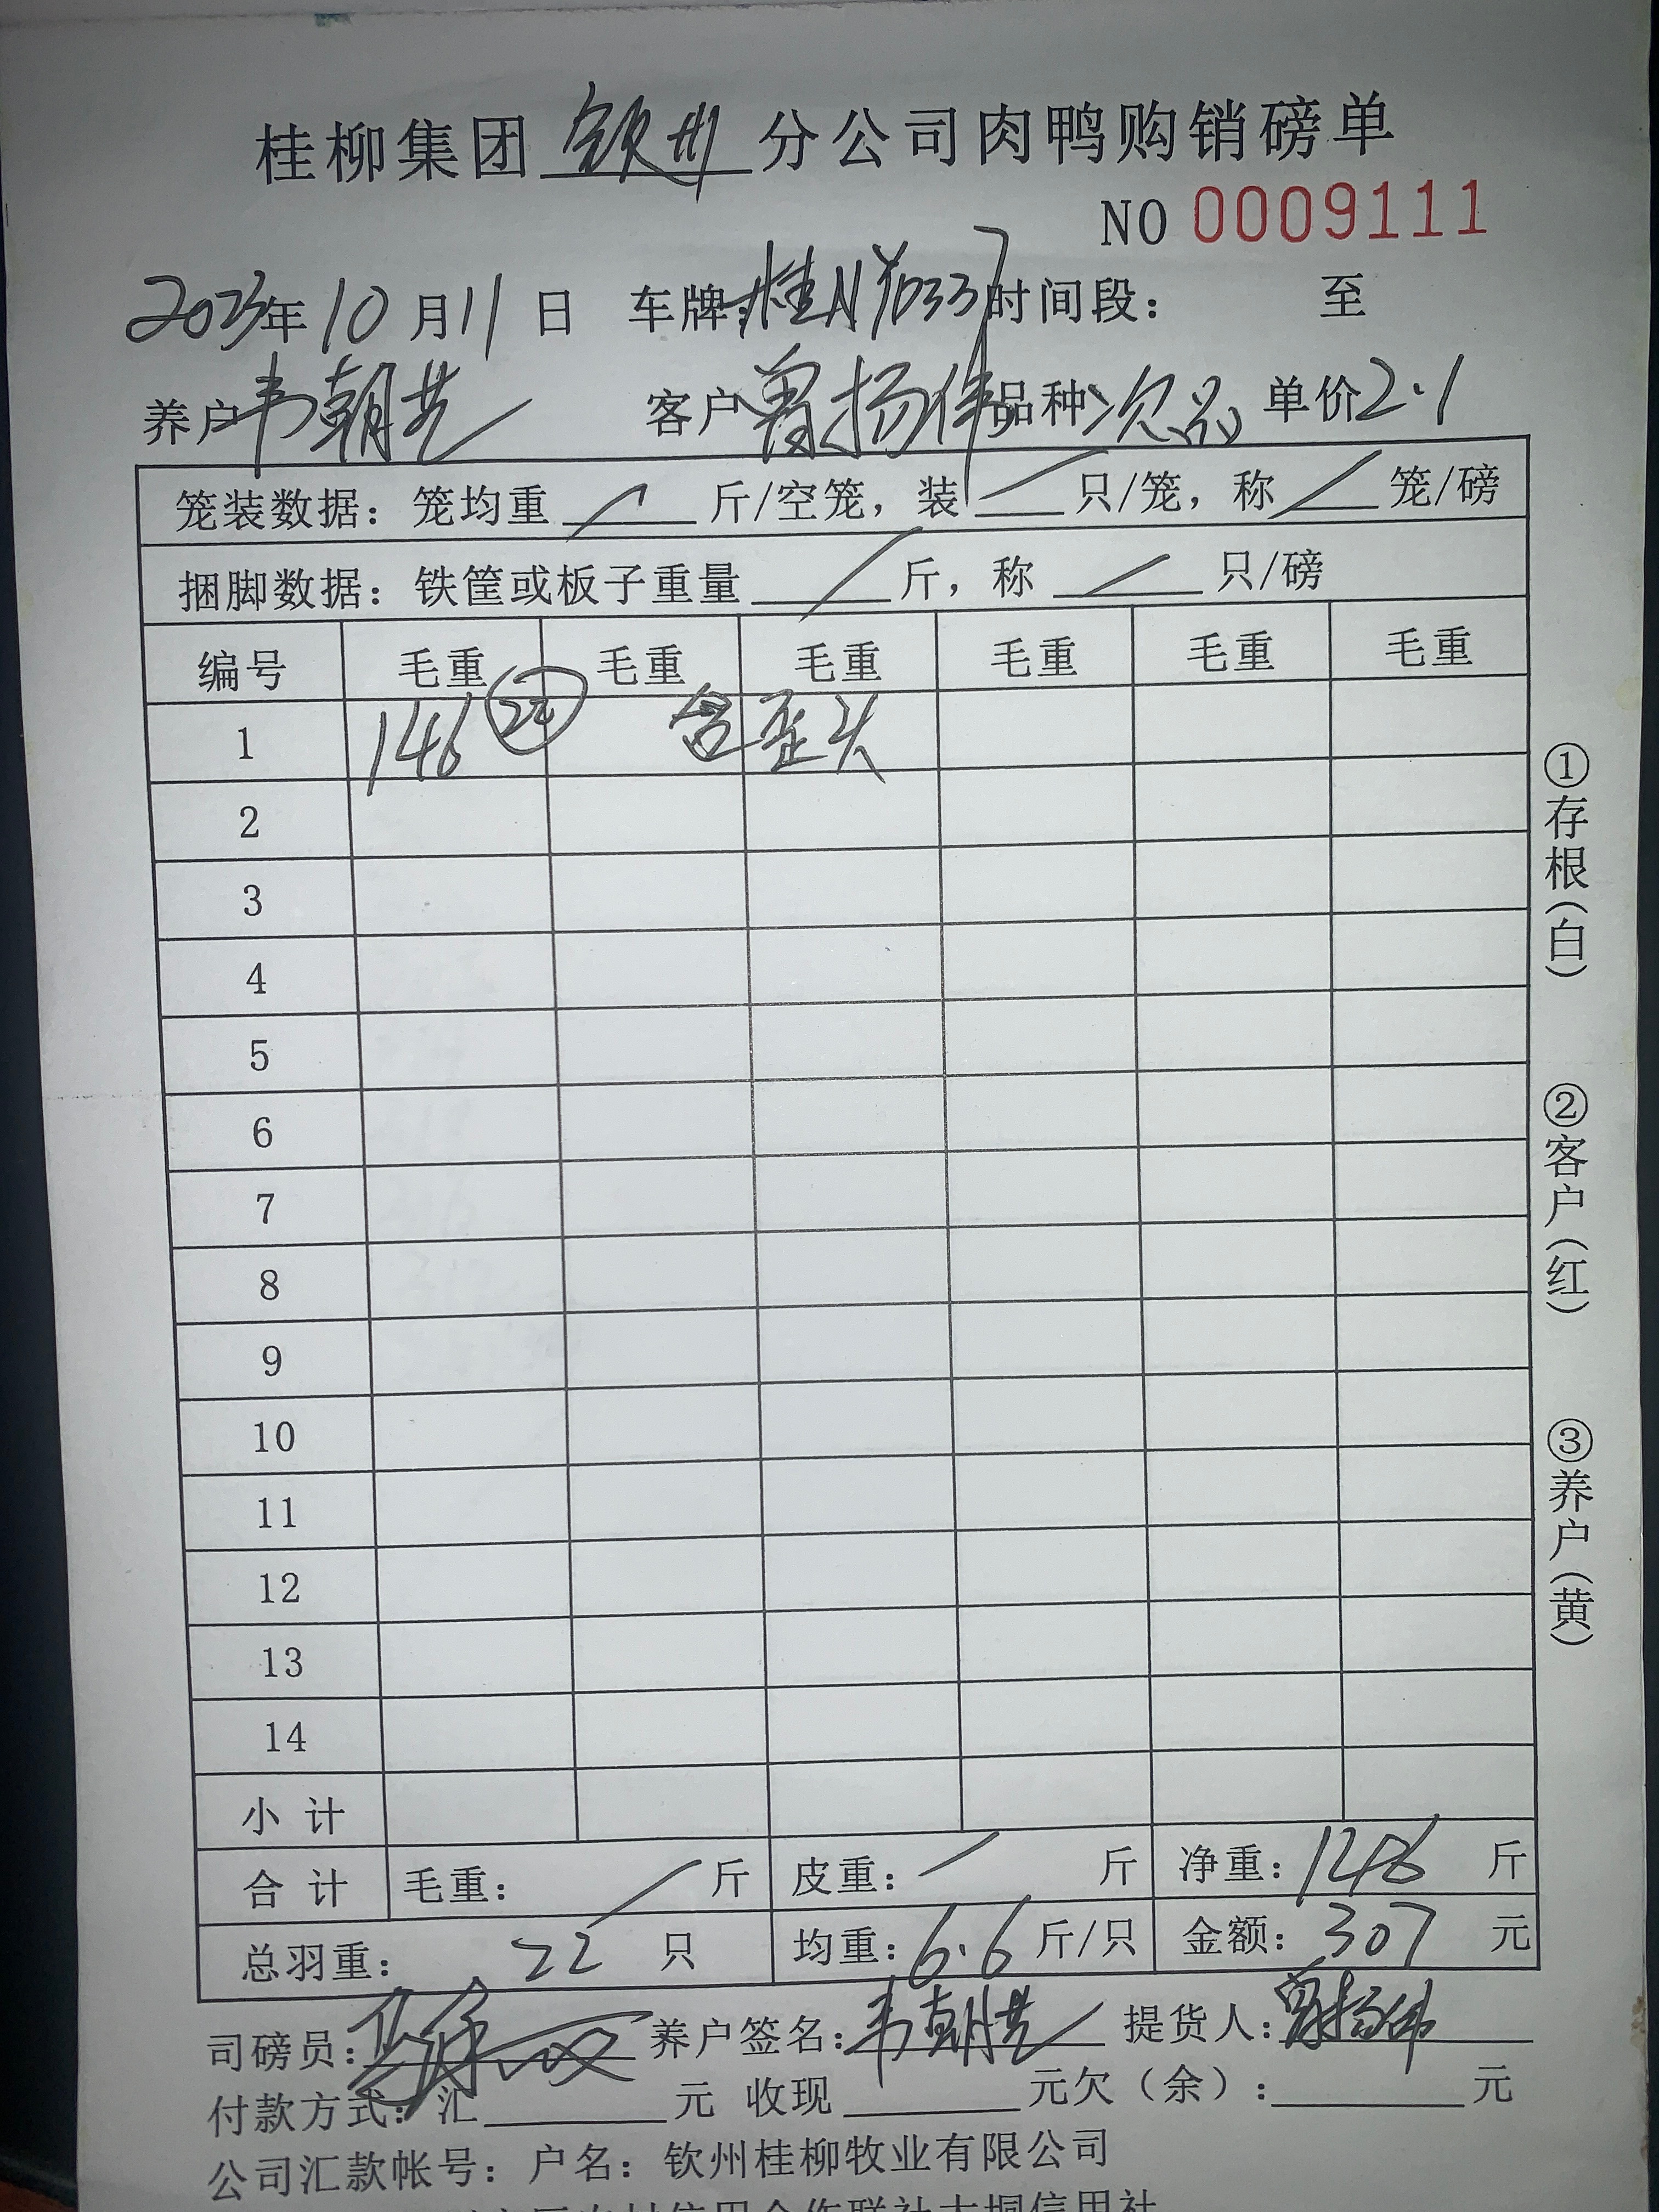 桂柳集团钦州分公司肉鸭购销磅单
NO 0009111
2023年10月11日 车牌:桂N 时间段: 至
养户韦朝芝 客户曾扬伟品种次品 单价2.1
笼装数据: 笼均重/斤/空笼, 装/只/笼, 称/笼/磅
捆脚数据: 铁筐或板子重量/斤, 称/只/磅
编号 毛重 毛重 毛重 毛重 毛重 毛重
1 146 22 含歪头
2
3
4
5
6
7
8
9
10
11
12
13
14
小计
合计 毛重: / 斤 皮重: / 斤 净重: 146 斤
总羽重: 22 只 均重: 6.6 斤/只 金额: 307 元
司磅员: 养户签名: 韦朝芝 提货人: 曾扬伟
付款方式: 汇 元 收现 元欠(余): 元
公司汇款帐号: 户名: 钦州桂柳牧业有限公司
①存根(白)
②客户(红)
③养户(黄)